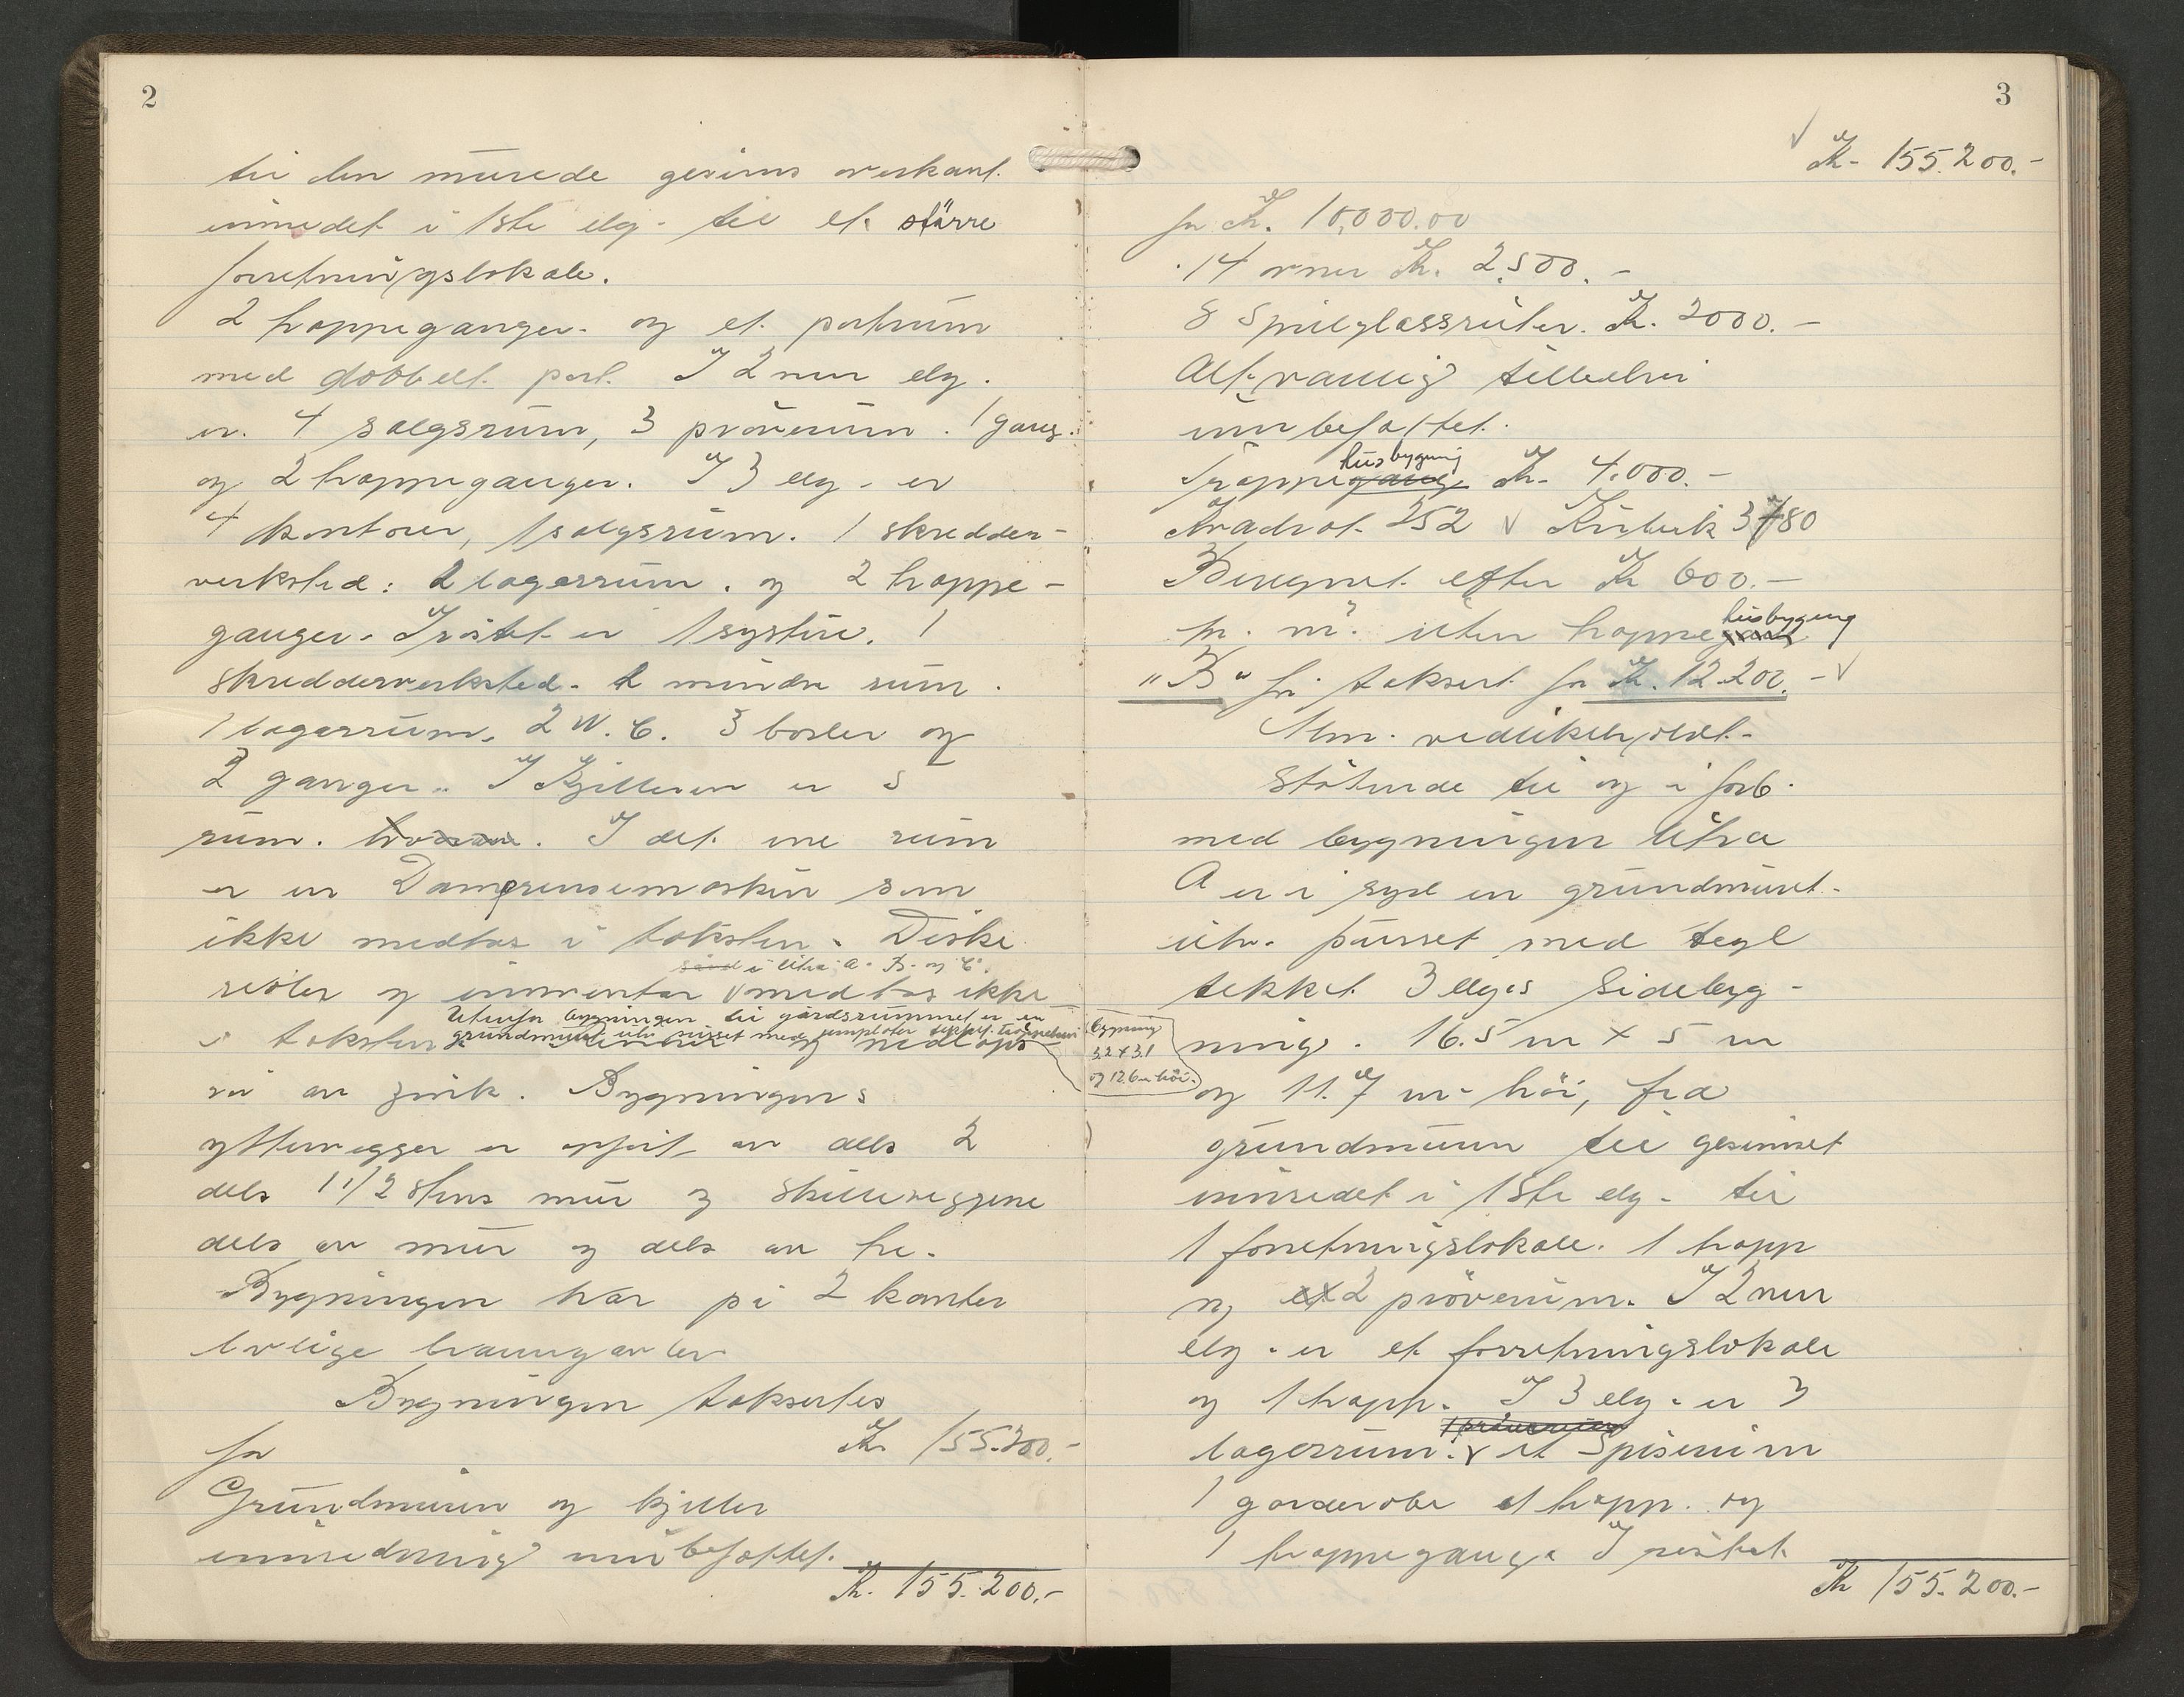 2
til den murede gesims overkant.
innredet i 1ste etg. til et større
forretningslokale.
2 trappeganger. og et portrum
med dobbelt port. I 2nen etg.
er. 4 salgsrum, 3 prøverum. 1 gang.
og 2 trappeganger. I 3 etg. er
4 kontorer, 1 salgsrum. 1 skredder-
verksted: 2 lagerrum. og 2 trappe-
ganger. I røstet er 1 systue. 1
skredderverksted. 2 mindre rum.
1 lagerrum. 2 W.C. 3 boder og
2 ganger. I Kjelleren er 5
rum. I det ene rum
er en Damprensemaskin som
ikke medtas i taksten. Diske
såvel i litra A. B. og C.
reoler og innventar medtas ikke
Utenfor bygningen til gårdsrummet er en
grundmuret utv. pusset med tekket trappehus
i taksten og nedløps
rør av zink. Bygningens
yttervegger er opført av dels 2
dels 1 1/2 stens mur og skilleveggene
dels av mur og dels av tre.
Bygningen har på 2 kanter
lovlige branngavler
Bygningen taksertes
for Kr. 155.200.-
Grundmuren og kjeller
innredning uinbefattet.
Kr. 155.200.-
3
Kr. 155.200.-
for Kr. 10,000.00
14 ovner Kr. 2.500.-
8 Speilglassruter. Kr. 2000.-
Alt vanlig tilbehør
innbefattet.
husbygning
Trappegang Kr. 4.000.-
Kvadrat 252 Kubik 3780
Beregnet efter Kr 600.-
husbygning
pr. m². uten trappegang
"B" før taksert for Kr. 12.200.-
Alm. vedlikeholdt.
Støtende til og i forb.
med bygningen litra
A er i syd en grundmuret.
utv. pusset med tegl
tekket 3 etges Sidebyg-
bygning
3.2 x 3.1
og 12.6 m høi.
ning. 16.5 m x 5 m
og 11.7 m. høi, fra
grundmuren til gesimset
innredet i 1ste etg. til
1 forretningslokale. 1 trapp
og et 2 prøverum. I 2nen
etg. er et forretningslokale
og 1 trapp. I 3 etg. er 3
1 prøverum
lagerrum. et Spiserum
1 garderobe et trapp. og
1 trappegang. I røstet
Kr 155.200.-